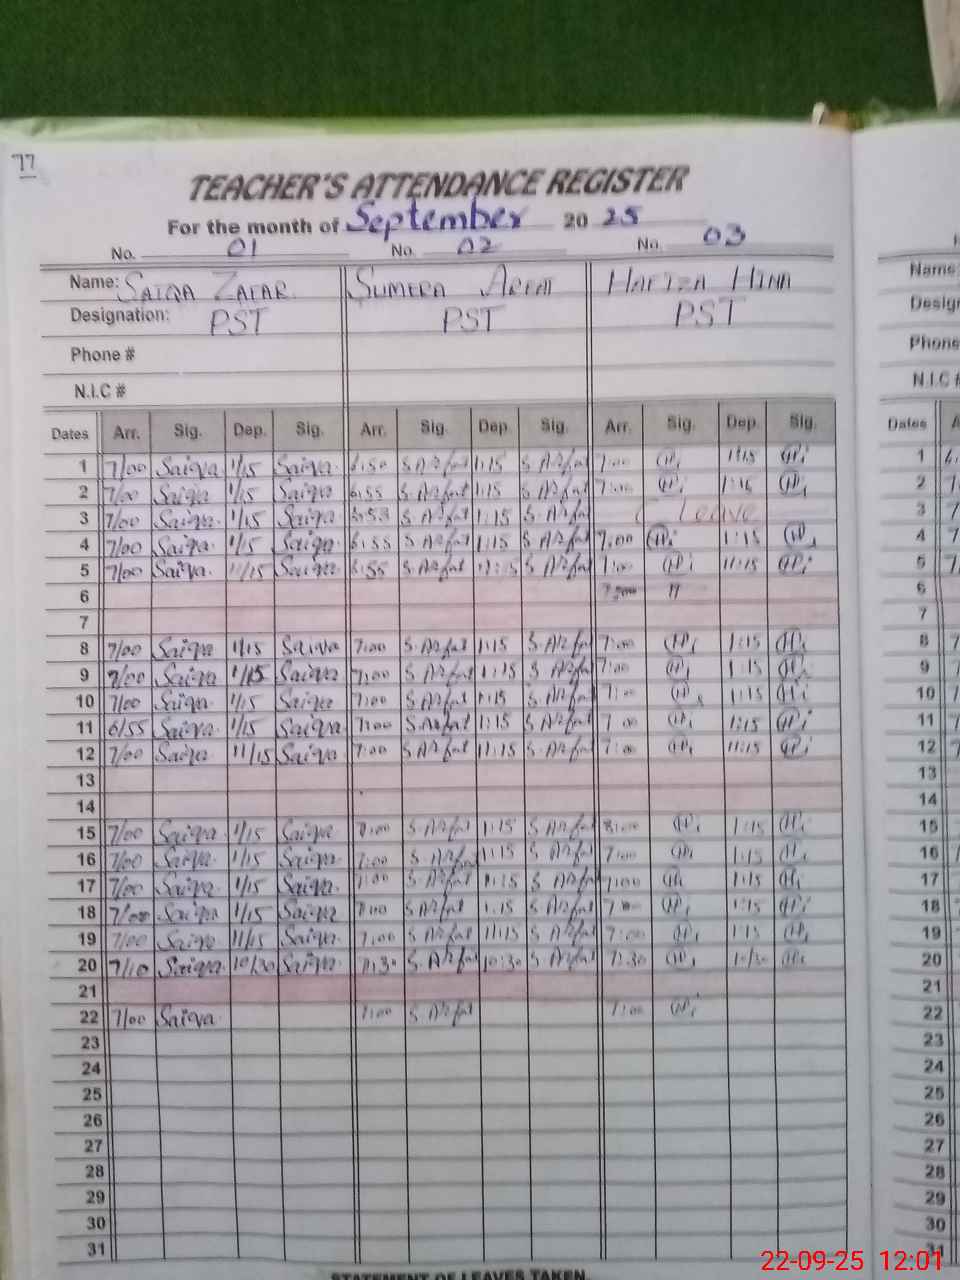 77
TEACHER'S ATTENDANCE REGISTER
For the month of September 2025
No. 01 No. 02 No. 03
Name: SAIQA ZAFAR SUMERA ARFAT HAFIZA HINA
Designation: PST PST PST
Phone #
N.I.C #
Dates Arr. Sig. Dep. Sig. Arr. Sig. Dep. Sig. Arr. Sig. Dep. Sig.
1 7/00 Saiqa 1/15 Saiqa 6:50 S.Arfat 1:15 S.Arfat 7:00 1:15
2 7/00 Saiqa 1/15 Saiqa 6:55 S.Arfat 1:15 S.Arfat 7:00 1:15
3 7/00 Saiqa 1/15 Saiqa 6:53 S.Arfat 1:15 S.Arfat Leave
4 7/00 Saiqa 1/15 Saiqa 6:55 S.Arfat 1:15 S.Arfat 7:00 1:15
5 7/00 Saiqa 11/15 Saiqa 6:55 S.Arfat 11:15 S.Arfat 7:00 11:15
6
7
8 7/00 Saiqa 1/15 Saiqa 7:00 S.Arfat 1:15 S.Arfat 7:00 1:15
9 7/00 Saiqa 1/15 Saiqa 7:00 S.Arfat 1:15 S.Arfat 7:00 1:15
10 7/00 Saiqa 1/15 Saiqa 7:00 S.Arfat 1:15 S.Arfat 7:00 1:15
11 6/55 Saiqa 1/15 Saiqa 7:00 S.Arfat 1:15 S.Arfat 7:00 1:15
12 7/00 Saiqa 11/15 Saiqa 7:00 S.Arfat 11:15 S.Arfat 7:00 11:15
13
14
15 7/00 Saiqa 1/15 Saiqa 7:00 S.Arfat 1:15 S.Arfat 8:00 1:15
16 7/00 Saiqa 1/15 Saiqa 7:00 S.Arfat 1:15 S.Arfat 7:00 1:15
17 7/00 Saiqa 1/15 Saiqa 7:00 S.Arfat 1:15 S.Arfat 7:00 1:15
18 7/00 Saiqa 1/15 Saiqa 7:00 S.Arfat 1:15 S.Arfat 7:00 1:15
19 7/00 Saiqa 11/15 Saiqa 7:00 S.Arfat 11:15 S.Arfat 7:00 1:15
20 7/10 Saiqa 10/30 Saiqa 7:30 S.Arfat 10:30 S.Arfat 7:30 10/30
21
22 7/00 Saiqa 7:00 S.Arfat 7:00
23
24
25
26
27
28
29
30
31
STATEMENT OF LEAVES TAKEN
22-09-25 12:01